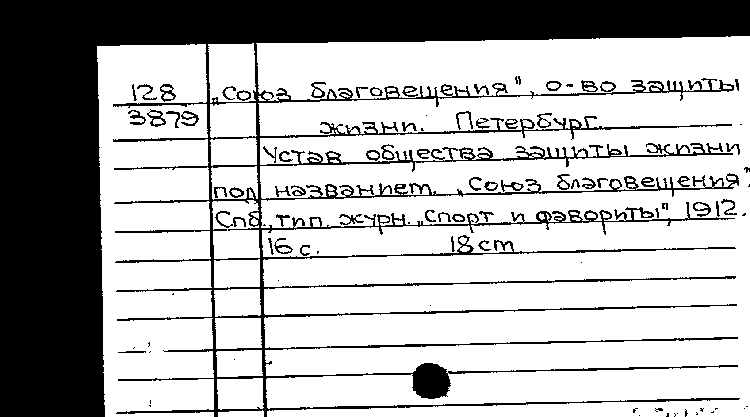 128 „Союз благовещения", о-во защиты
3879 жизни. Петербург.
Устав общества защиты жизни
под названием „Союз благовещения".
Спб., тип. журн. „Спорт и фавориты", 1912.
16 с. 18 cm